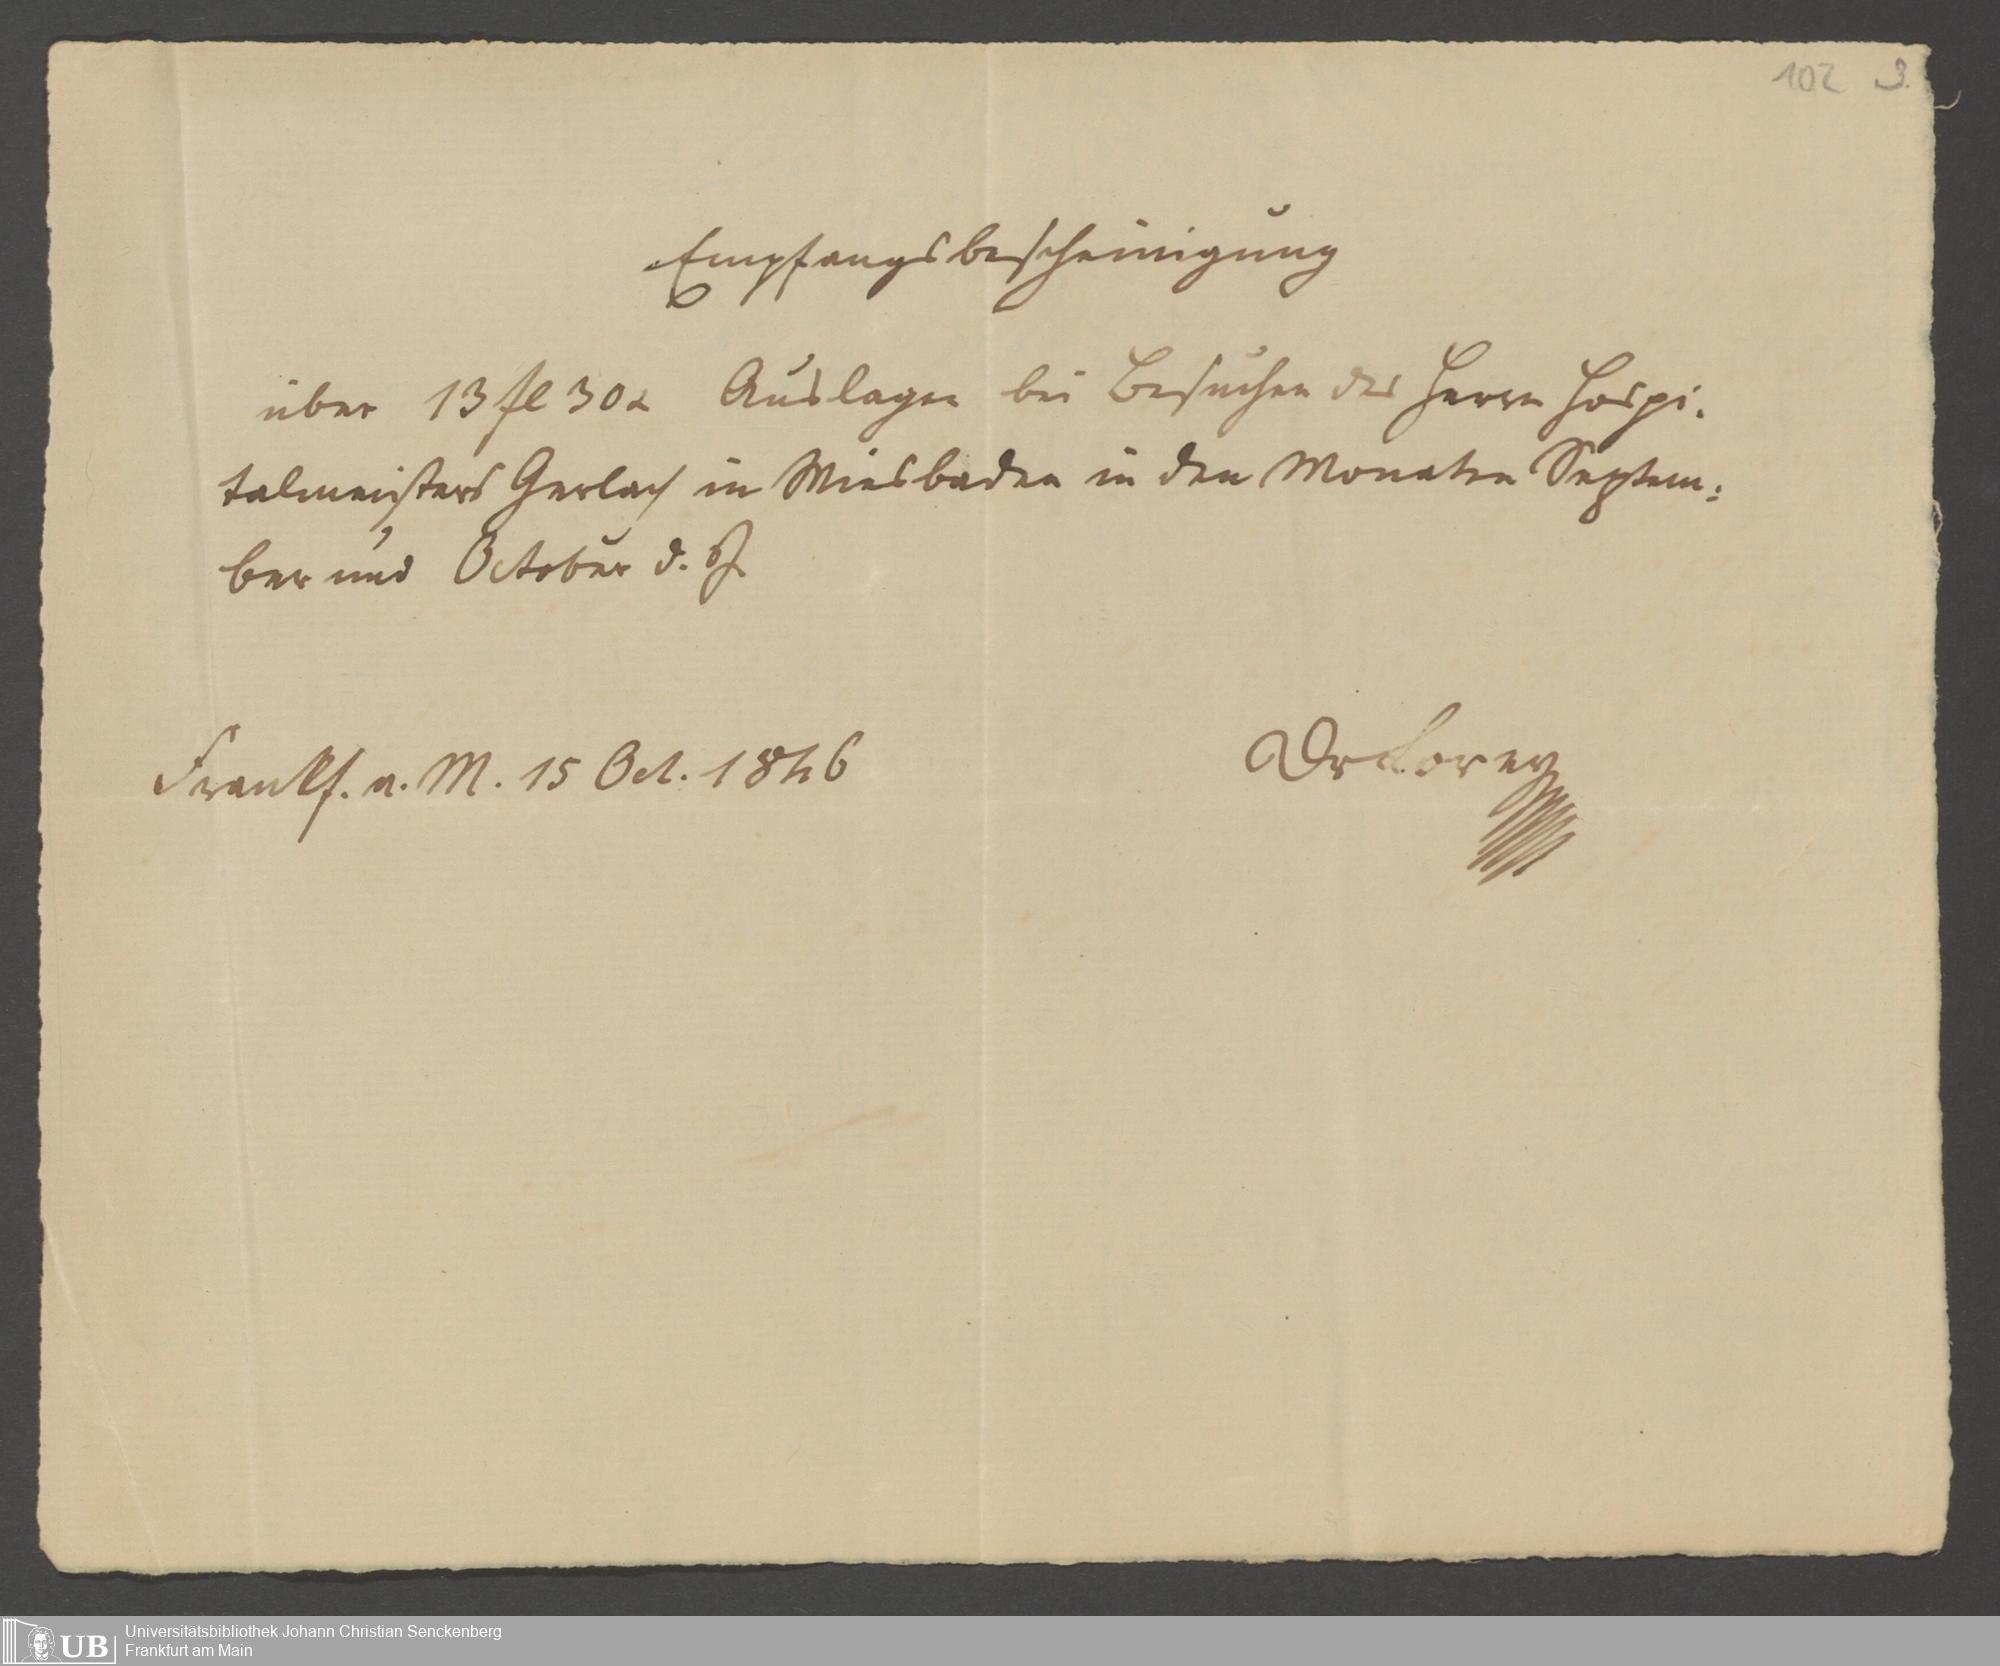 102 3.
Empfangsbescheinigung
über 13 fl 30 x Auslagen bei Besuchen des Herrn Hospi-
talmeisters Gerlach in Wiesbaden in den Monaten Septem-
ber und October d. J.
Frankf. a. M. 15 Oct. 1846
Dr Lorey
UB
Universitätsbibliothek Johann Christian Senckenberg
Frankfurt am Main